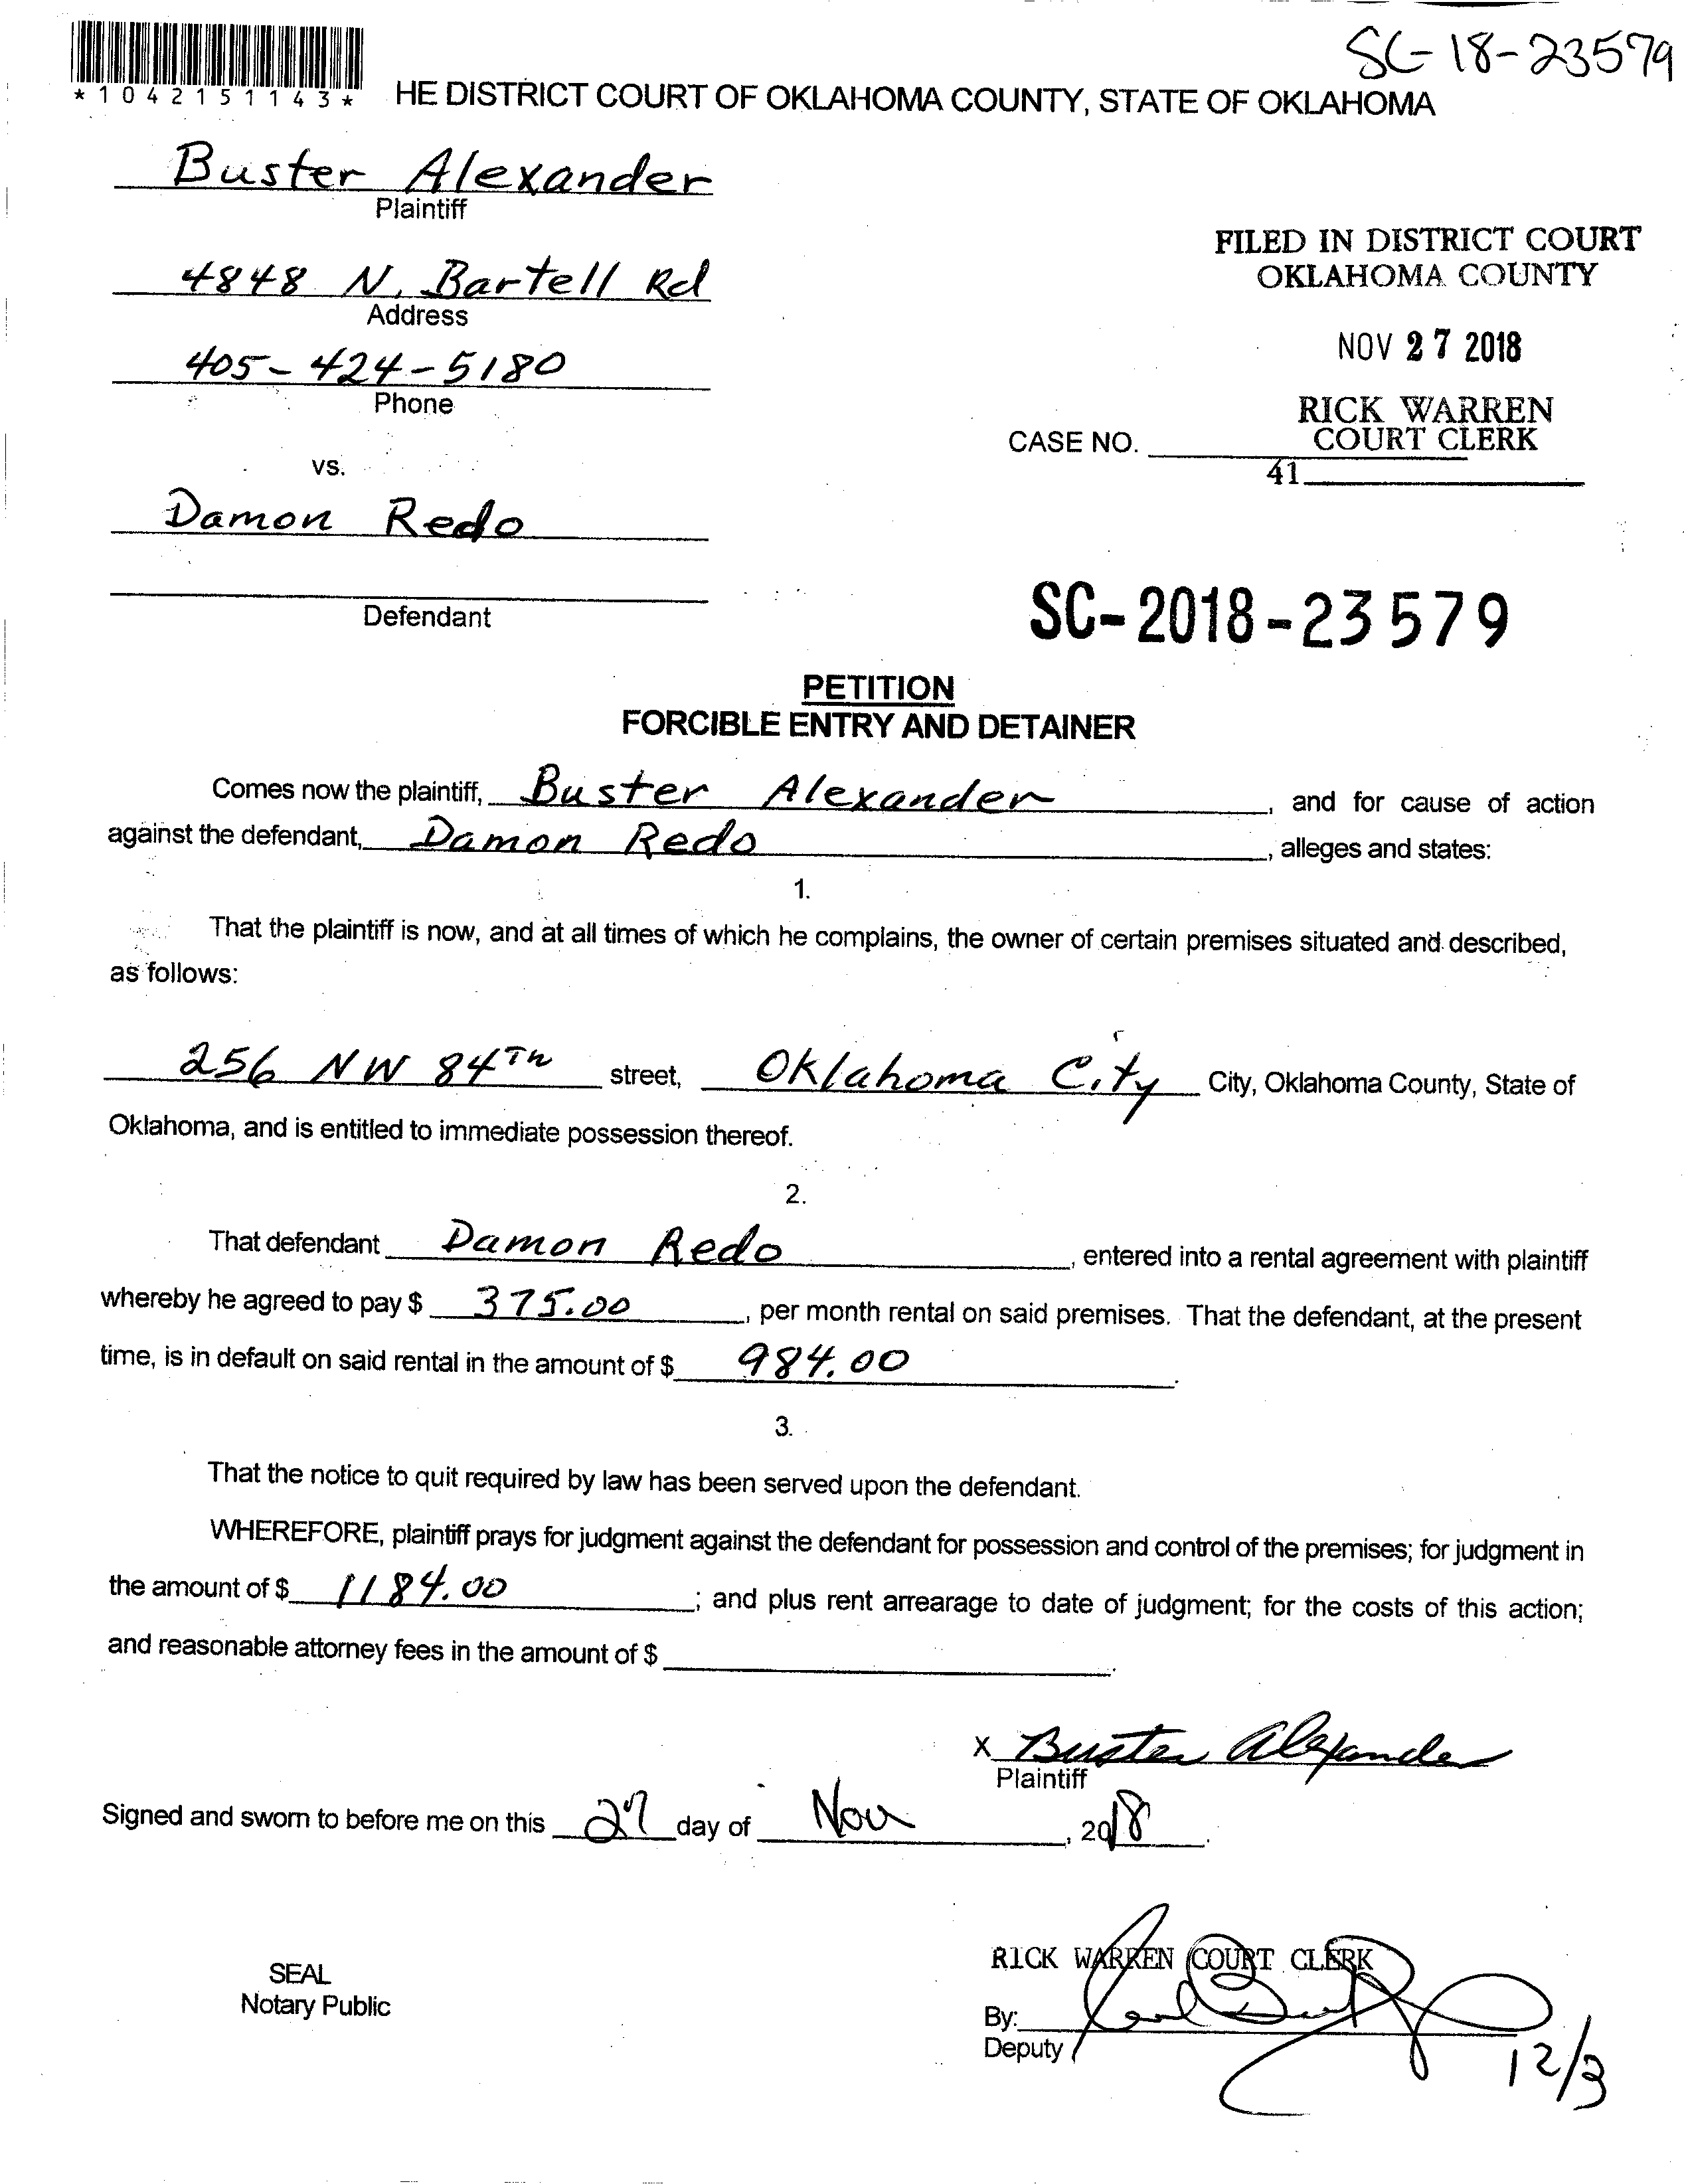 SC-18-23579
*1042151143*
HE DISTRICT COURT OF OKLAHOMA COUNTY, STATE OF OKLAHOMA
Buster Alexander
Plaintiff
4848 N. Bartell Rd
Address
405-424-5180
Phone
FILED IN DISTRICT COURT
OKLAHOMA COUNTY
NOV 27 2018
RICK WARREN
COURT CLERK
CASE NO.
41
vs.
Damon Redo
Defendant
SC-2018-23579
PETITION
FORCIBLE ENTRY AND DETAINER
Comes now the plaintiff, Buster Alexander, and for cause of action
against the defendant, Damon Redo, alleges and states:
1.
That the plaintiff is now, and at all times of which he complains, the owner of certain premises situated and described,
as follows:
256 NW 84TH street, Oklahoma City City, Oklahoma County, State of
Oklahoma, and is entitled to immediate possession thereof.
2.
That defendant Damon Redo, entered into a rental agreement with plaintiff
whereby he agreed to pay $ 375.00, per month rental on said premises. That the defendant, at the present
time, is in default on said rental in the amount of $ 984.00.
3.
That the notice to quit required by law has been served upon the defendant.
WHEREFORE, plaintiff prays for judgment against the defendant for possession and control of the premises; for judgment in
the amount of $ 1184.00; and plus rent arrearage to date of judgment; for the costs of this action;
and reasonable attorney fees in the amount of $ .
X Buster Alexander
Plaintiff
Signed and sworn to before me on this 27 day of Nov, 2018.
RICK WARREN COURT CLERK
SEAL
Notary Public
By:
Deputy
12/3